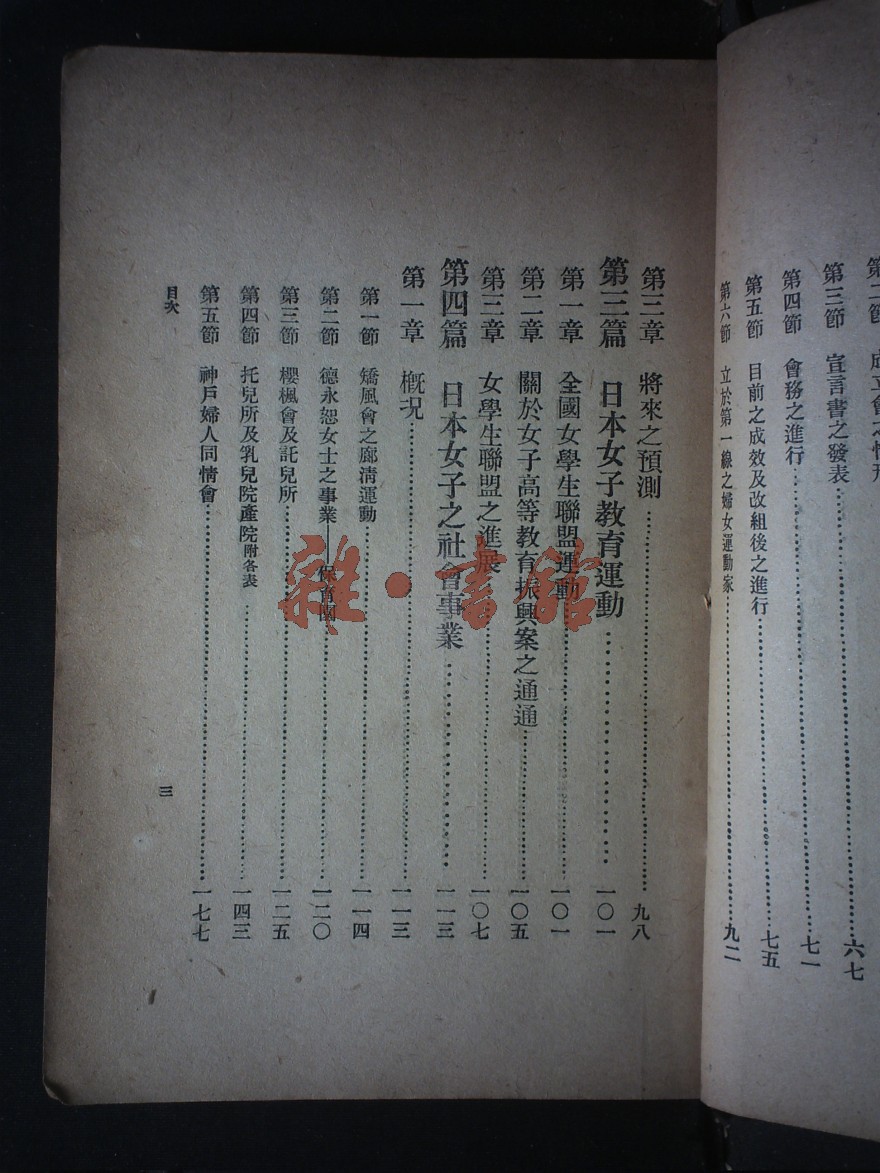 成立會之情形
第三節 宣言書之發表……六七
第四節 會務之進行……七一
第五節 目前之成效及改組後之進行……七五
第六節 立於第一線之婦女運動家……九二
第三章 將來之預測……九八
第三篇 日本女子教育運動……一〇一
第一章 全國女學生聯盟運動……一〇一
第二章 關於女子高等教育振興案之通通……一〇五
第三章 女學生聯盟之進展……一〇七
第四篇 日本女子之社會事業……一一三
第一章 概況……一一三
第一節 矯風會之廊清運動……一一四
第二節 德永恕女士之事業——保育園……一二〇
第三節 櫻楓會及託兒所……一二五
第四節 托兒所及乳兒院產院附各表……一四三
第五節 神戶婦人同情會……一七七
目次
三
雜·書館